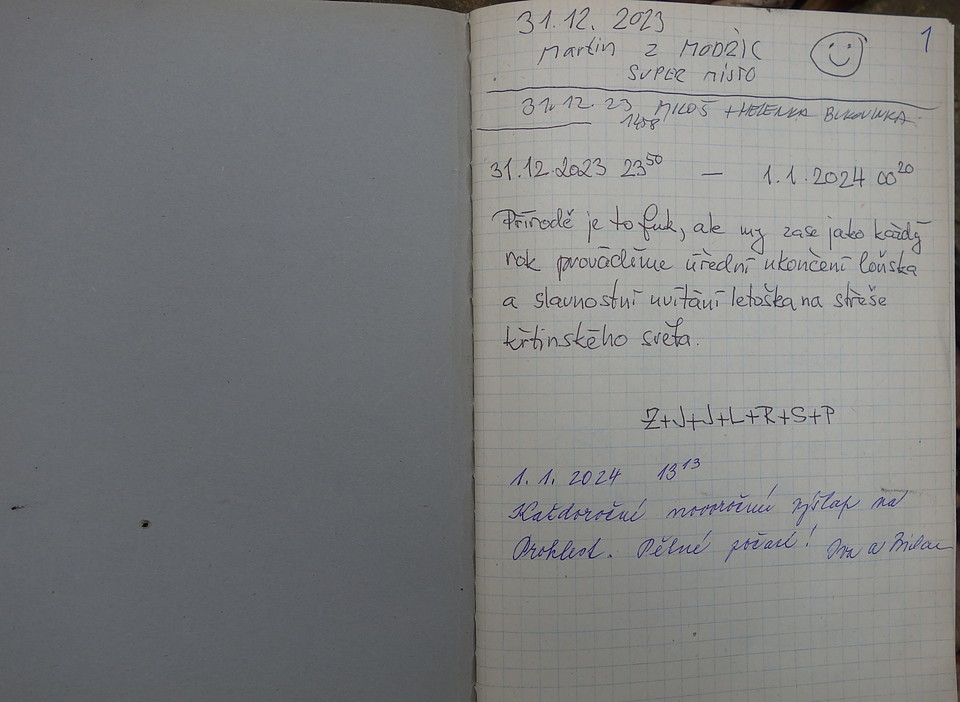 1
31.12. 2023
Martin z MODŽIC
SUPER MÍSTO
31.12. 23 MILOŠ + HELENKA BUKOVINKA
1458
31.12.2023 23⁵⁰ — 1.1.2024 00²⁰
Přírodě je to fuk, ale my zase jako každý
rok provádíme úřední ukončení loňska
a slavnostní uvítání letoška na střeše
křtinského světa.
Z+J+J+L+R+S+P
1. 1. 2024 13¹³
Každoroční novoroční výšlap na
Proklest. Pěkné počasí! a